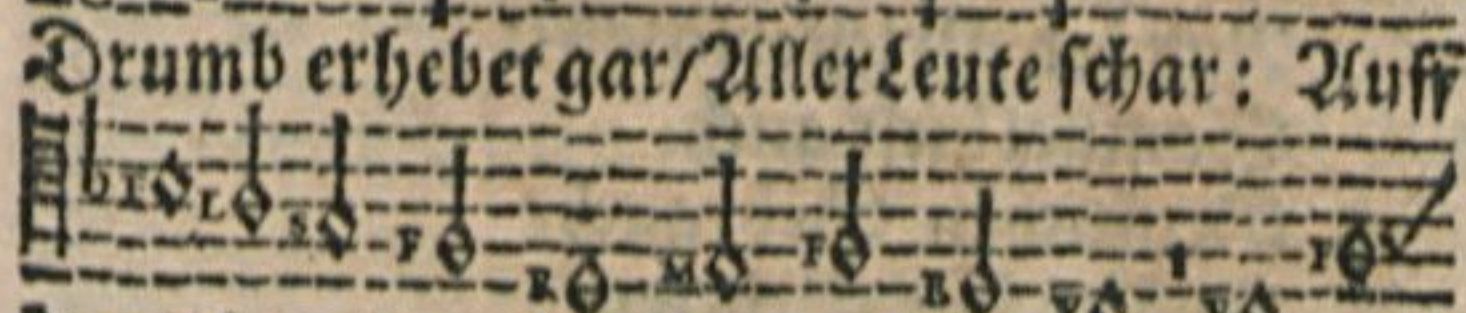 Drumb erhebet gar/Aller Leute ſchar: Auff
L S F R M F R F S